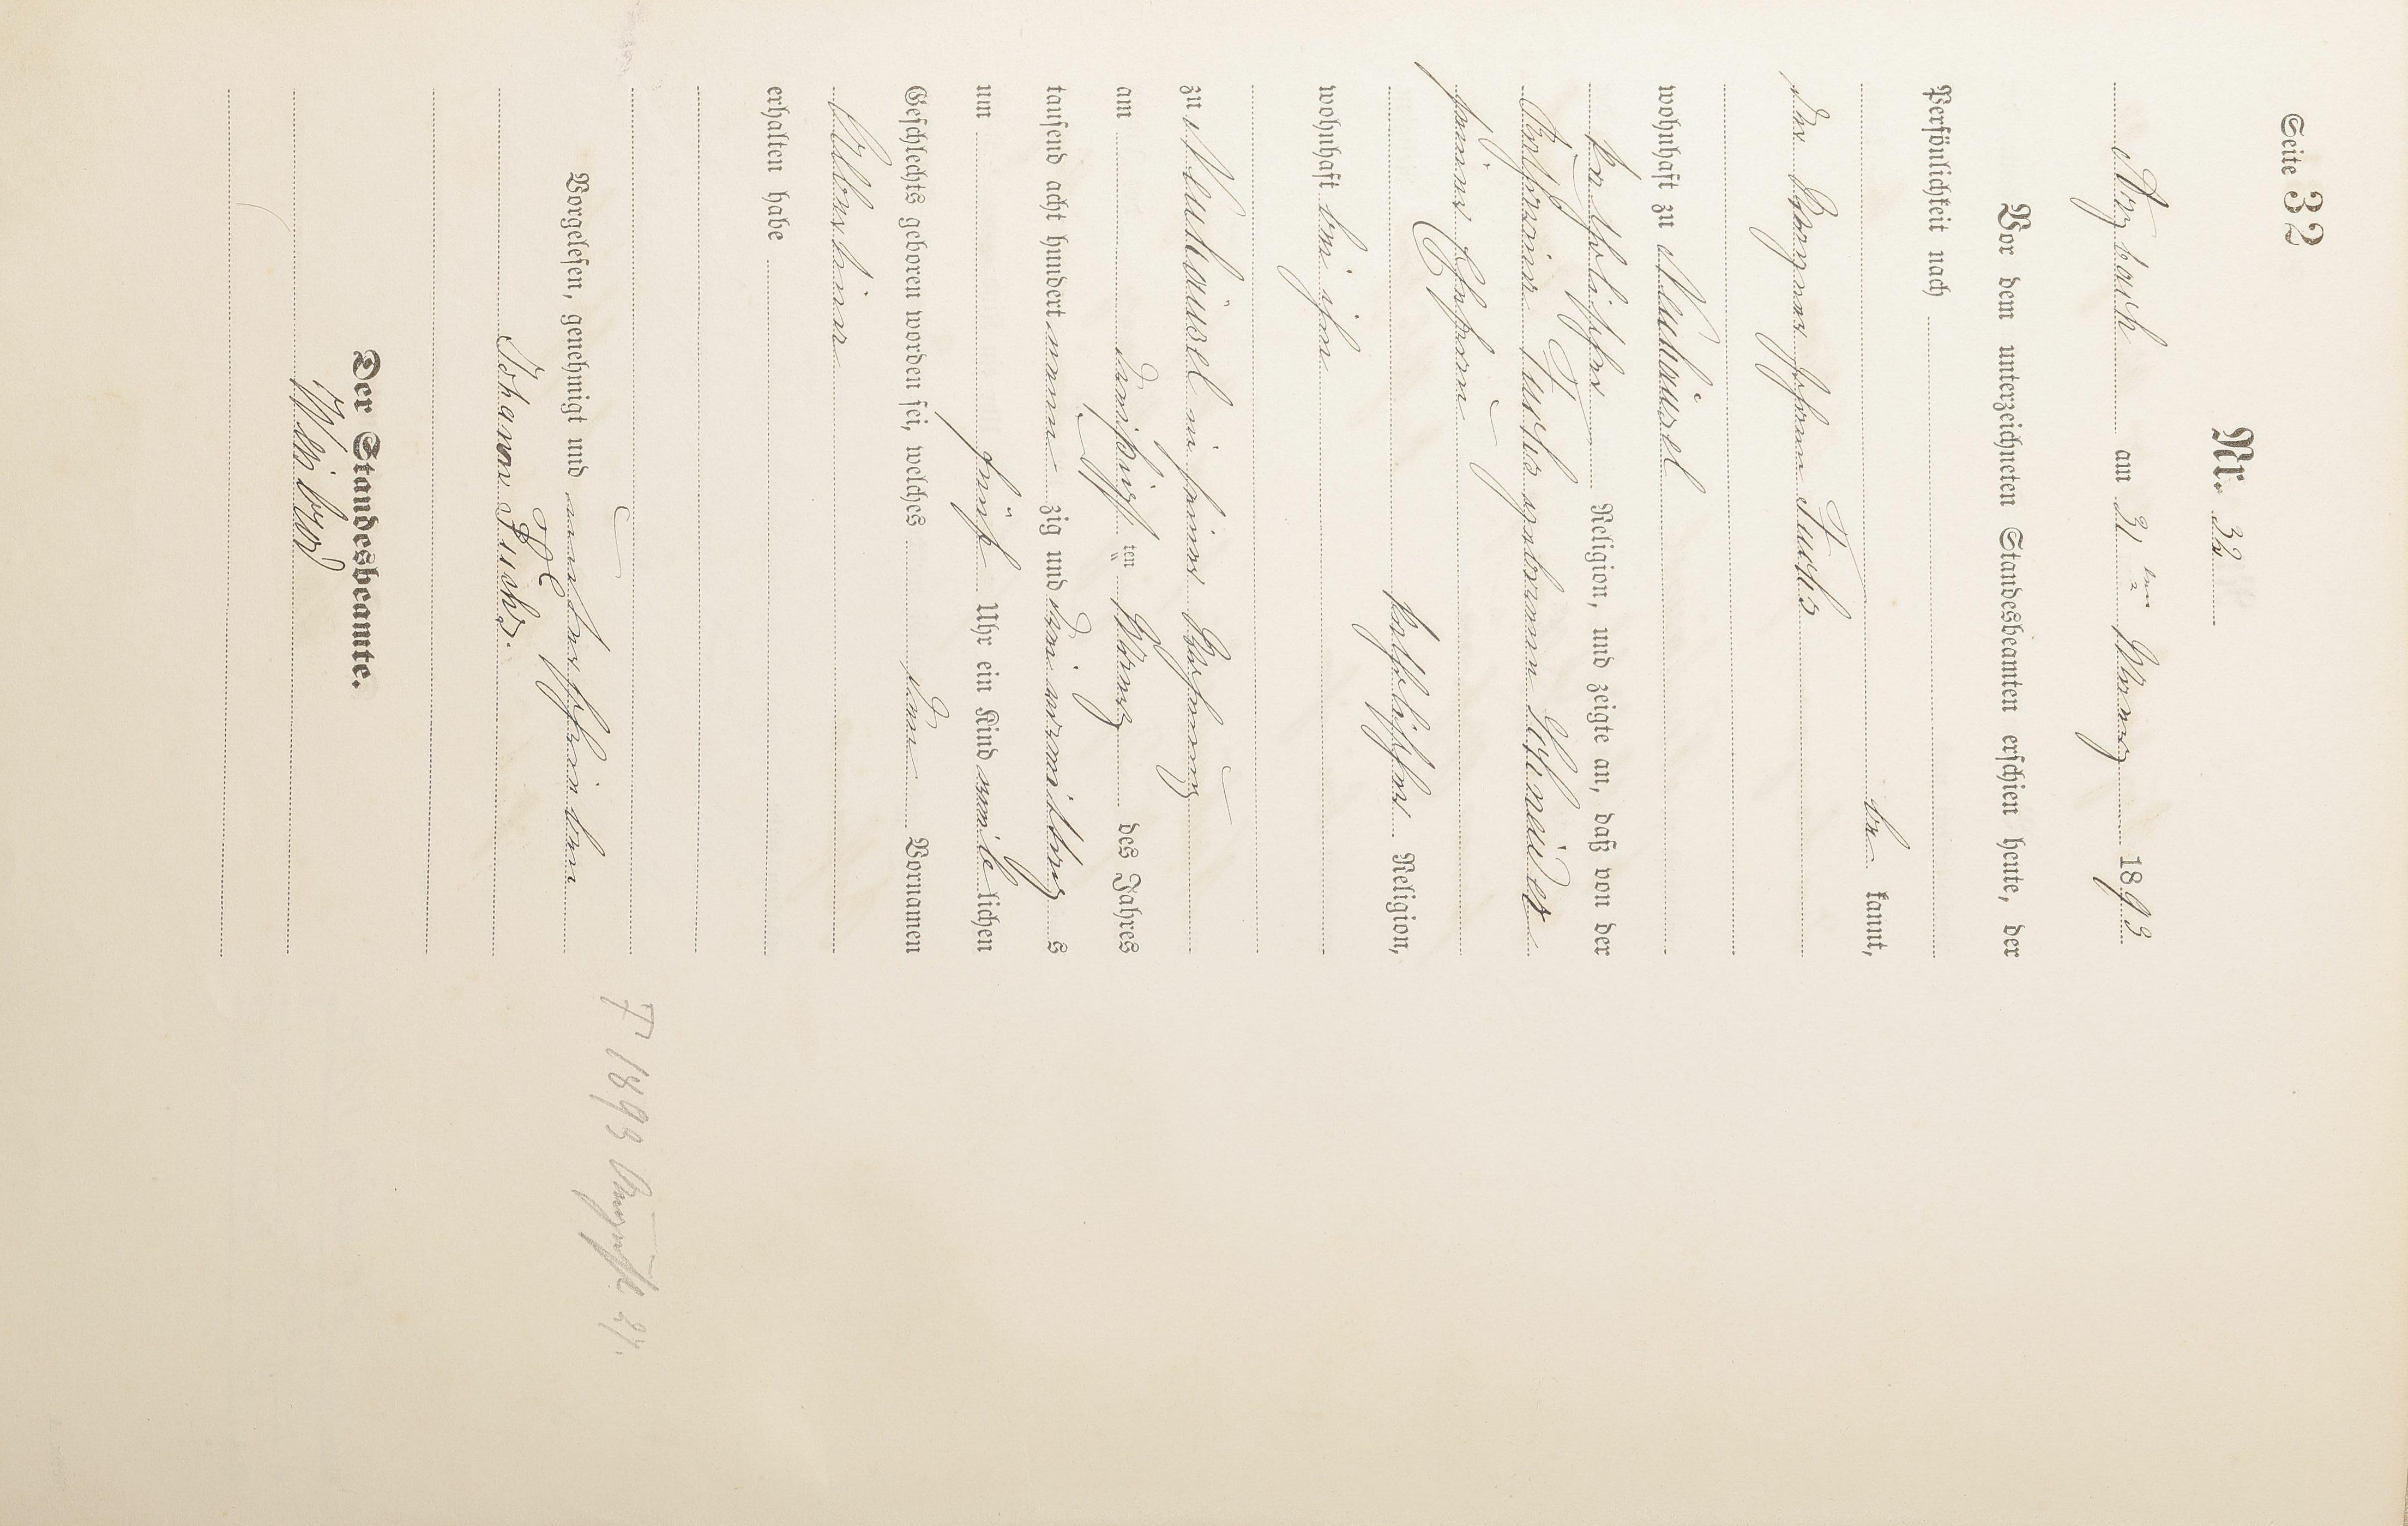 Seite 32
Nr. 32
Arzbach am 31ten März 1893
Vor dem unterzeichneten Standesbeamten erschien heute, der
Persönlichkeit nach
be kannt,
der Bergmann Johann Fuchs
wohnhaft zu Neuhäusel
katholischer Religion, und zeigte an, daß von der
Fuchs geborenen Schneider
seiner Ehefrau
katholischer Religion,
wohnhaft bei ihm
zu Neuhäusel in seiner Wohnung
am dreißigsten März des Jahres
tausend acht hundert neun zig und drei vormittags
um fünf Uhr ein Kind weib lichen
Geschlechts geboren worden sei, welches den Vornamen
Albertine
erhalten habe
Vorgelesen, genehmigt und unterschrieben
Johann Fuchs.
Der Standesbeamte.
† 1893 August 21.